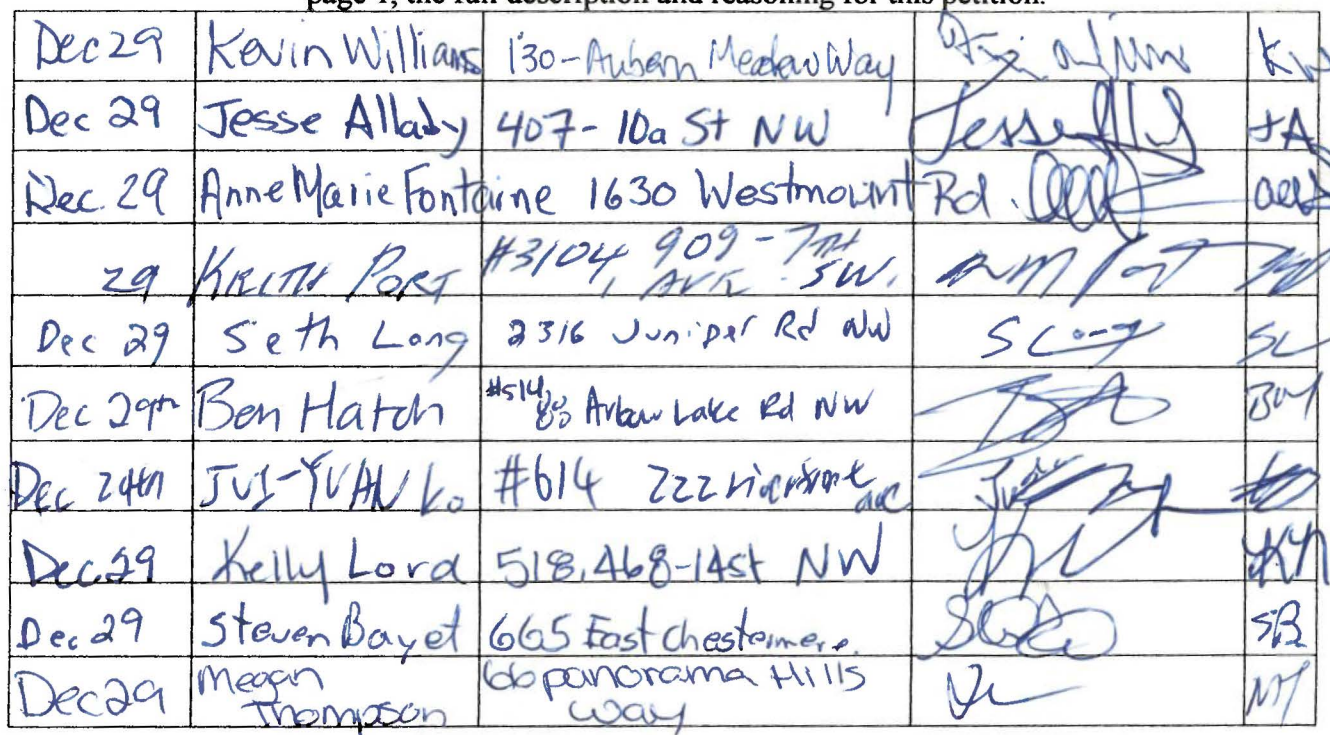 page 1, the full description and reasoning for this petition.
Dec 29 Kevin Williams 130-Auburn Meadow Way KW
Dec 29 Jesse Allady 407-10a St NW JA
Dec. 29 Anne Marie Fontaine 1630 Westmount Rd.
29 KEITH PORT #3104, 909-7TH AVE SW.
Dec 29 Seth Long 2316 Juniper Rd NW S Long SL
Dec 29th Ben Hatch #514 Arbour Lake Rd NW
Dec 29th JUI-YUAN Ko #614 222 riverfront ave
Dec 29 Kelly Lord 518, 468-14st NW
Dec 29 Steven Bayet 665 East Chestermere SB
Dec 29 Megan Thompson 66 panorama Hills way MT